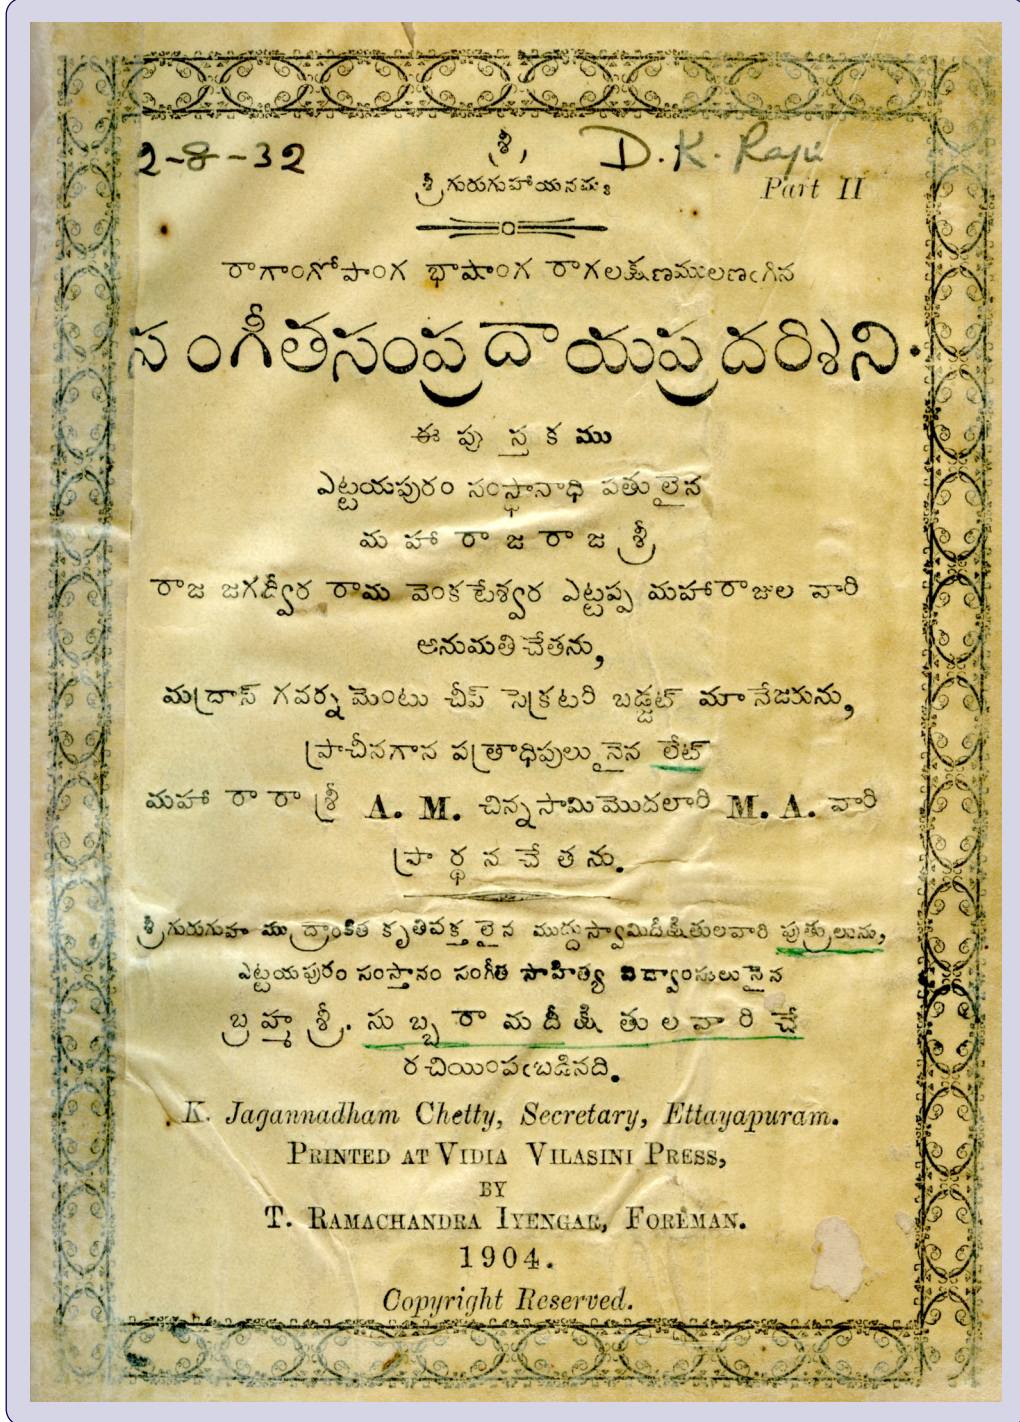 2-8-32
శ్రీ
D. K. Raju
శ్రీగురుగుహాయనమః
Part II
రాగాంగోపాంగ భాషాంగ రాగలక్షణములణఁగిన
సంగీతసంప్రదాయప్రదర్శిని.
ఈ పు స్త క ము
ఎట్టయపురం సంస్థానాధి పతులైన
మ హా రా జ రా జ శ్రీ
రాజ జగద్వీర రామ వెంకటేశ్వర ఎట్టప్ప మహారాజుల వారి
అనుమతి చేతను,
మద్రాస్ గవర్న మెంటు చీప్ సెక్రటరి బడ్జట్ మానేజరును,
ప్రాచీనగాన పత్రాధిపులునైన లేట్
మహా రా రా శ్రీ A. M. చిన్నసామి మొదలారి M. A. వారి
ప్రా ర్థ న చే త ను.
శ్రీగురుగుహ ముద్రాంకిత కృతివక్తలైన ముద్దుస్వామిదీక్షితులవారి పుత్రులును,
ఎట్టయపురం సంస్తానం సంగీత సాహిత్య విద్వాంసులునైన
బ్ర హ్మ శ్రీ. సు బ్బ రా మ దీ క్షి తు ల వా రి చే
రచియింపఁబడినది.
K. Jagannadham Chetty, Secretary, Ettayapuram.
PRINTED AT VIDIA VILASINI PRESS,
BY
T. RAMACHANDRA IYENGAR, FOREMAN.
1904.
Copyright Reserved.